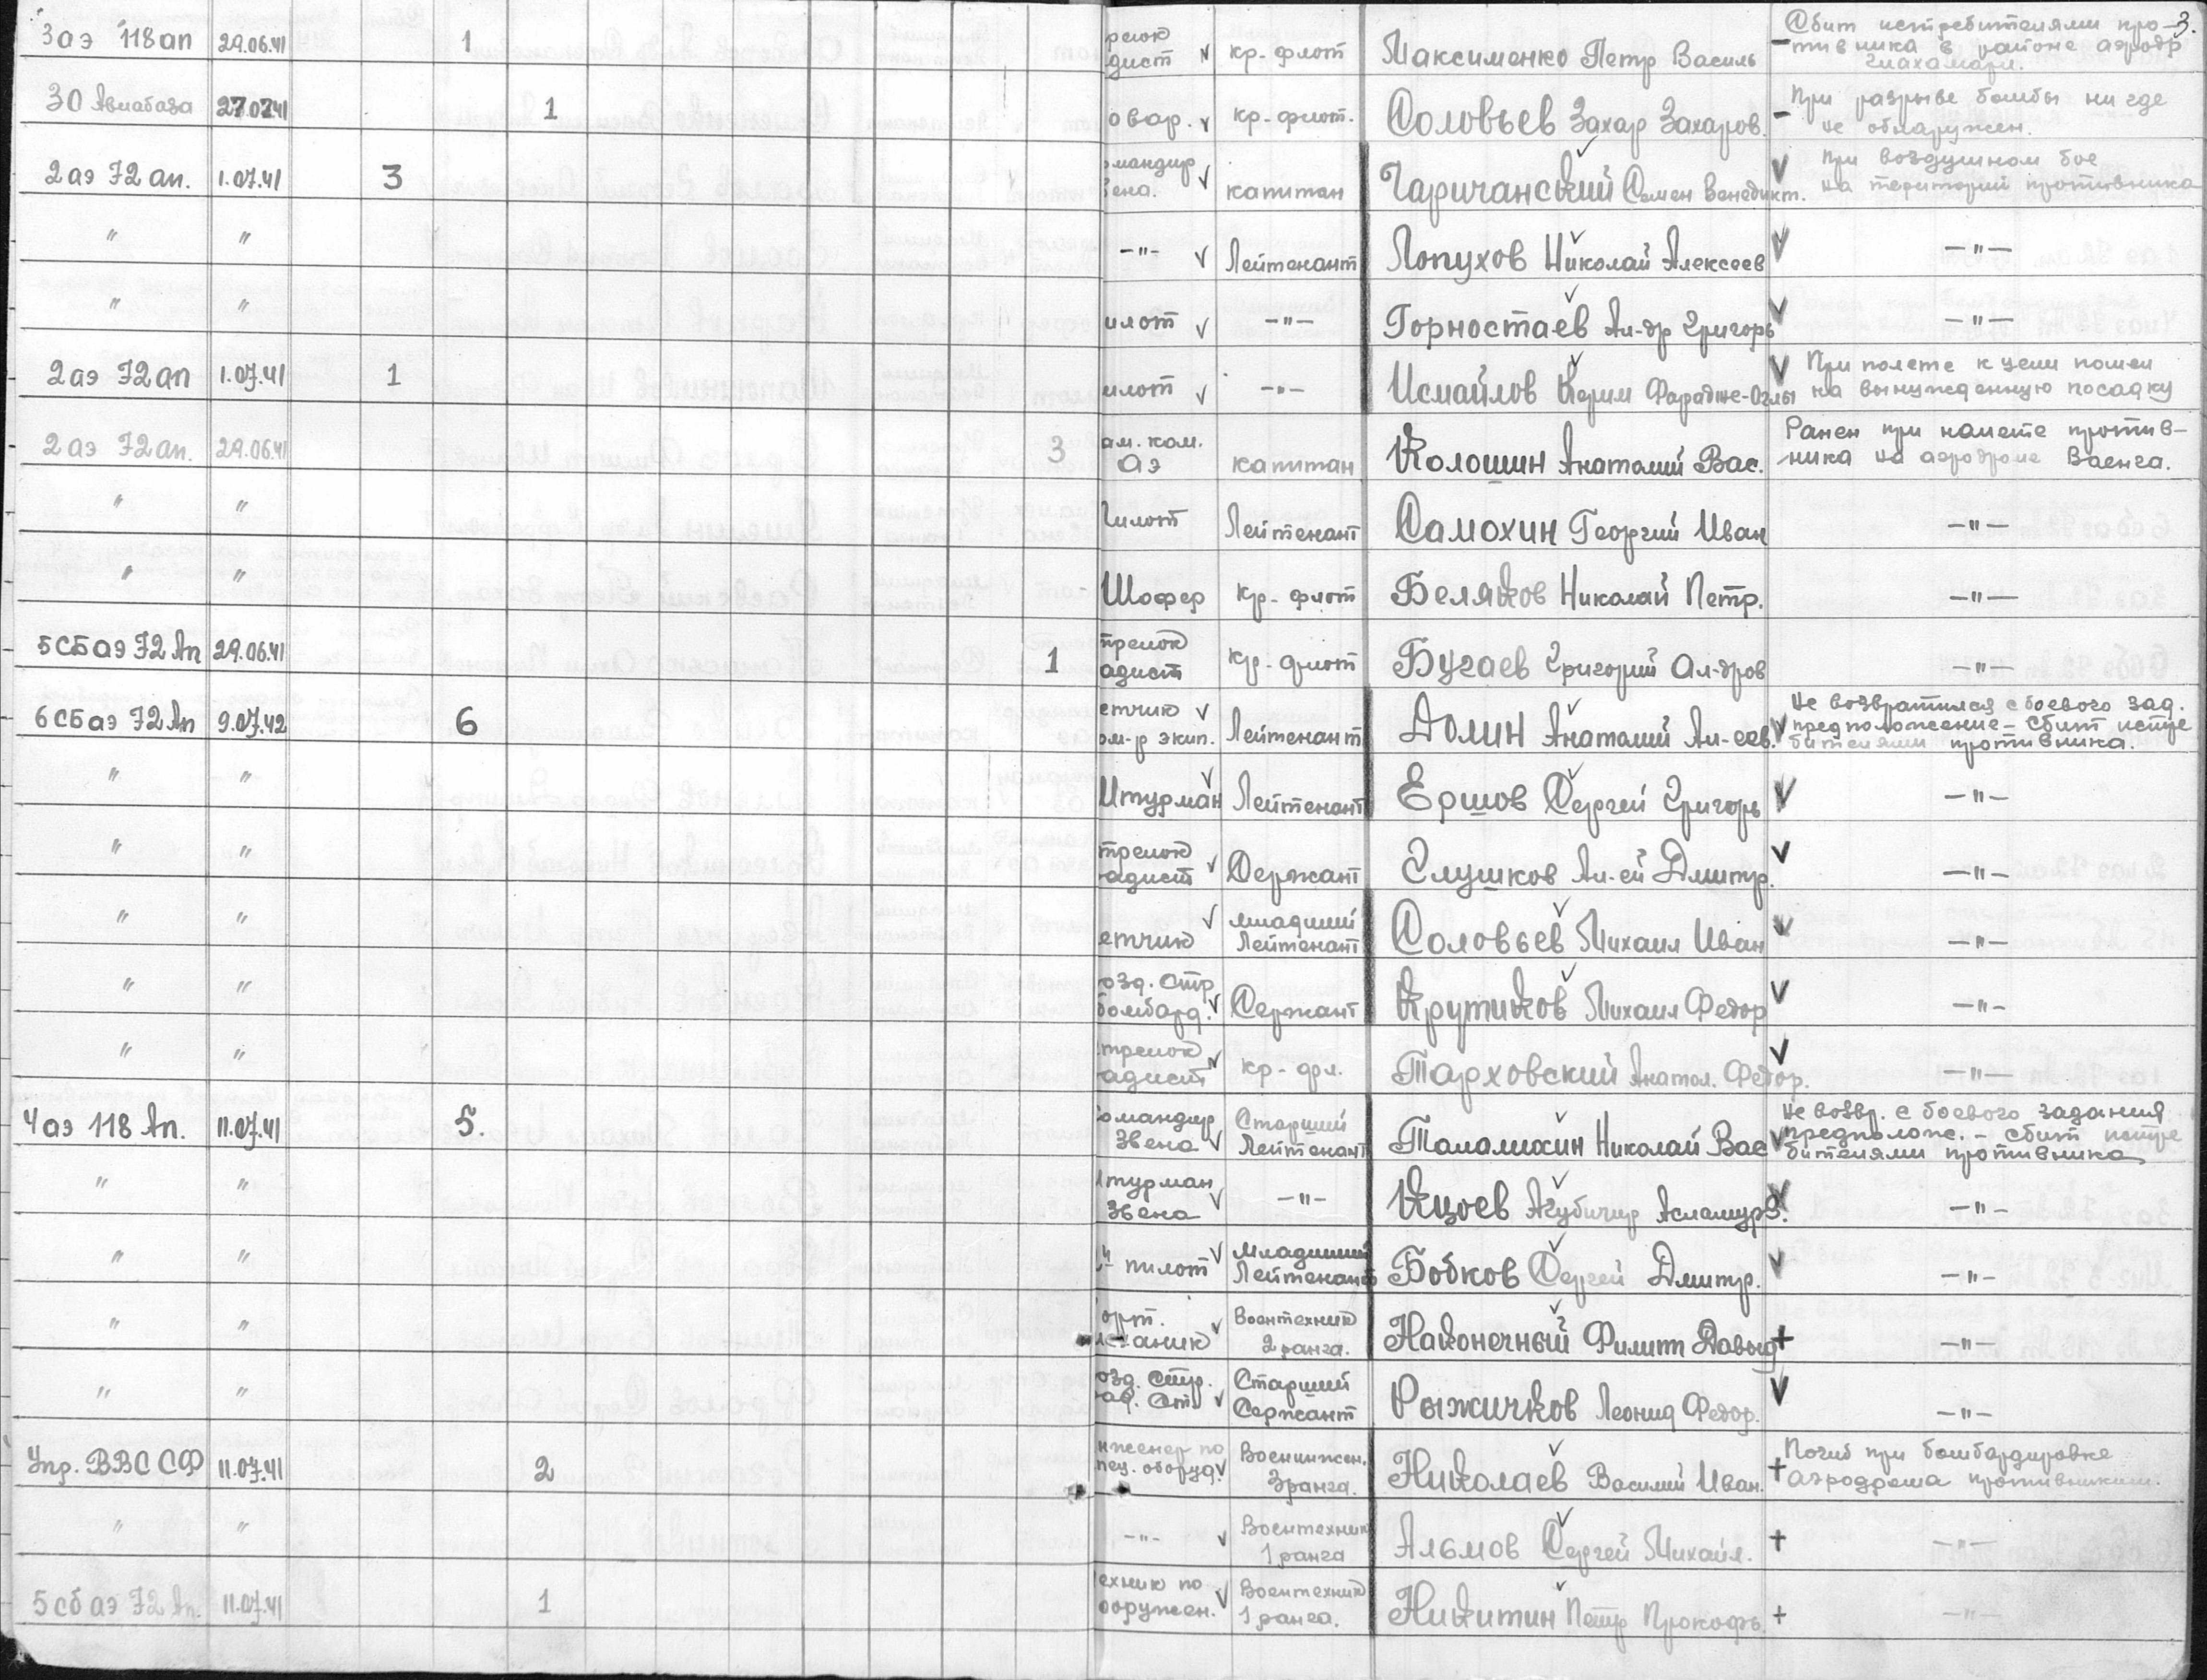 3.
3 аэ 118 ап 29.06.41 1 релок дист кр-флот Максименко Петр Василь Сбит истребителями про-
тивника в районе аэродр
30 Авиабаза 27.07.41 1 овар. кр-флот. Соловьев Захар Захаров. При разрыве бомбы ни где
не обнаружен.
2 аэ 72 ап. 1.07.41 3 омандир ена. капитан Чаричанский Семен Венедикт. При воздушном бое
на територий противника
" " -"- Лейтенант Лопухов Николай Алексеев -"-
" " илот -"- Горностаев Ал-др Григорь -"-
2 аэ 72 ап 1.07.41 1 илот -"- Исмайлов Керим Фарадже-Оглы При полете к цели пошел
на вынужденную посадку
2 аэ 72 ап. 29.06.41 3 ам. ком. аэ капитан Колошин Анатолий Вас. Ранен при налете против-
ника на аэродроме Ваенга.
" " илот Лейтенант Самохин Георгий Иван -"-
" " Шофер кр-флот Беляков Николай Петр. -"-
5 СБ аэ 72 Ап 29.06.41 1 трелок адист кр-флот Бугаев Григорий Ал-дров -"-
6 СБ аэ 72 Ап 9.07.42 6 етчик ом-р экип. Лейтенант Долин Анатолий Ал-еев. Не возвратился с боевого зад.
предположение - сбит истре
бителями противника.
" " Штурман Лейтенант Ершов Сергей Григорь -"-
" " трелок адист Сержант Слушков Ал-ей Дмитр. -"-
" " етчик младший Лейтенант Соловьев Михаил Иван -"-
" " озд. стр бомбард. Сержант Крутиков Михаил Федор -"-
" " трелок адист кр-фл. Тарховский Анатол. Федор. -"-
4 аэ 118 Ап. 11.07.41 5. омандир звена Старший Лейтенант Таламихин Николай Вас Не возвр. с боевого задания
предполож. - сбит истре
бителями противника
" " турман звена -"- Кцоев -"-
" " пилот Младший Лейтенант Бобков Сергей Дмитр. -"-
" " орт. механик Воентехник 2 ранга. Наконечный Филипп Давыд + -"-
" " озд. стр. Старший Сержант Рыжичков Леонид Федор. -"-
Упр. ВВС СФ 11.07.41 2 нженер по пец. оборуд. Воeнинжен. 3 ранга. Николаев Василий Иван. + Погиб при бомбардировке
аэродрома противником.
" " -"- Воентехник 1 ранга Альмов Сергей Михайл. + -"-
5 сб аэ 72 Ап. 11.07.41 1 ехник по ооружен. Воентехник 1 ранга. Никитин Петр Прокофь. + -"-